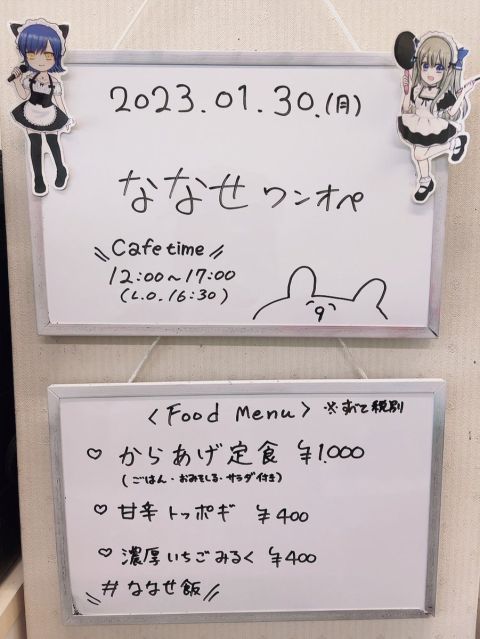 2023.01.30.(月)
ななせ ワンオペ
\\ Cafe time //
12:00～17:00
(L.O. 16:30)
〈Food Menu〉 ※すべて税別
♡ からあげ定食 ¥1,000
(ごはん・おみそしる・サラダ付き)
♡ 甘辛トッポギ ¥400
♡ 濃厚いちごみるく ¥400
\\ #ななせ飯 //